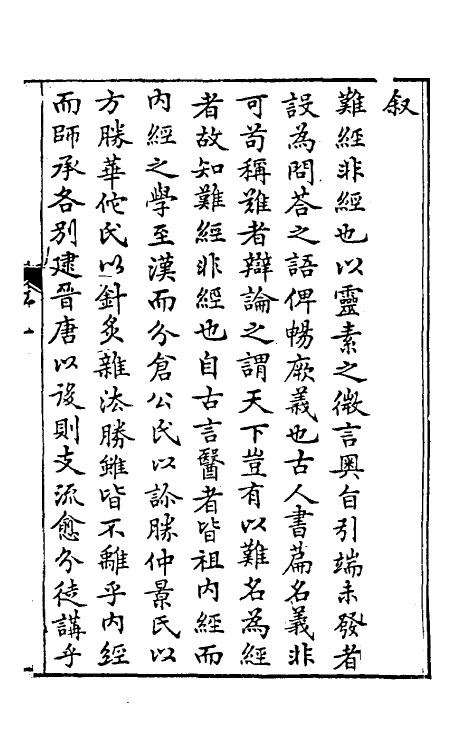 叙
難經非經也以靈素之微言奥旨引端未發者
設為問荅之語俾暢厥義也古人書篇名義非
可苟稱難者辯論之謂天下豈有以難名為經
者故知難經非經也自古言醫者皆祖内經而
内經之學至漢而分倉公氏以診勝仲景氏以
方勝華佗氏以針灸雜法勝雖皆不離乎内經
而師承各别建晉唐以後則支流愈分徒講乎